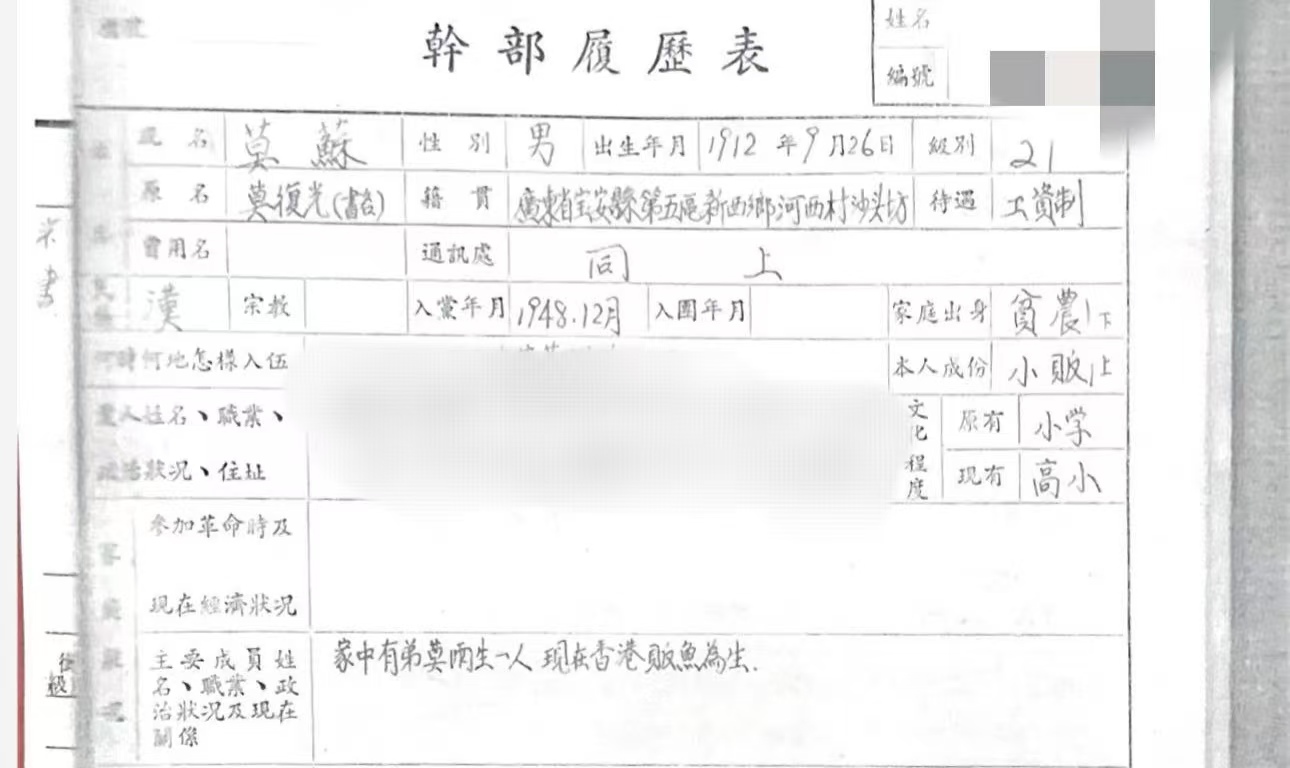 幹部履歷表
姓名
編號
現名 莫蘇 性別 男 出生年月 1912年9月26日 級別 21
原名 莫復光(書台) 籍貫 廣東省宝安縣第五區新西鄉河西村沙头坊 待遇 工資制
曾用名 通訊處 同上
漢 宗教 入黨年月 1948.12月 入團年月 家庭出身 貧農 下
何時何地怎樣入伍 本人成份 小販 上
愛人姓名、職業、 文化程度 原有 小学
政治狀況、住址 现有 高小
參加革命時及
现在經濟狀况
主要成員姓 家中有弟莫两生一人 现在香港販魚為生.
名、職業、政
治狀况及现在
關係